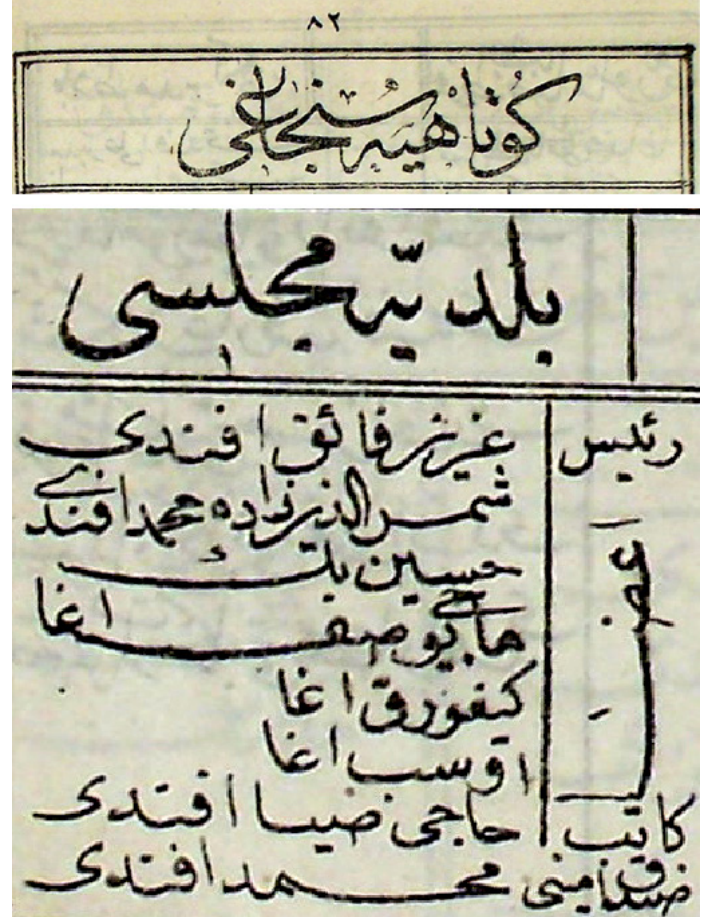 ٨٢
كُوتَاهْيَه سُنجاغى
بلديّه مجلسى
رئيس عزيز فائق افندى
اعضا شمس الدين زاده محمد افندى
حسين بك
حاجى يوصف اغا
كيفورق اغا
اوسب اغا
كاتب حاجى ضيا افندى
صندق امينى محمد افندى